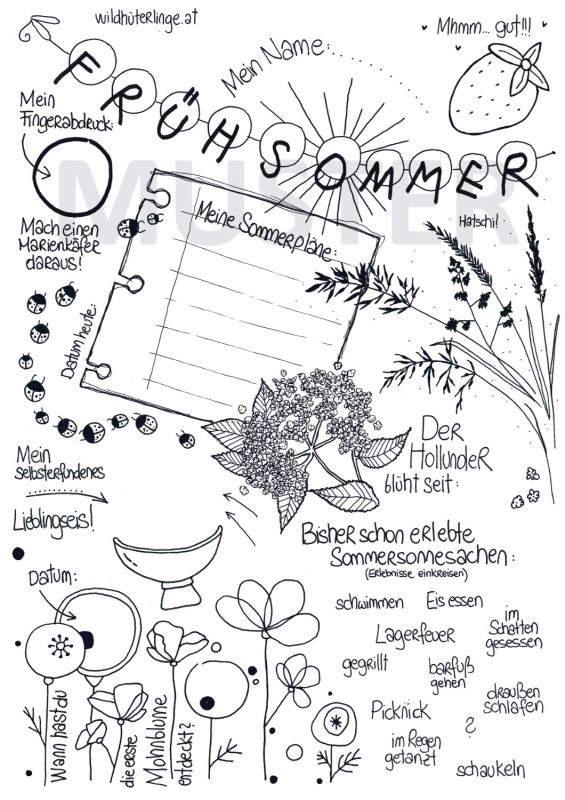 wildhüterlinge.at
Mhmm... gut!!!
Mein Name:
FRÜHSOMMER
Mein
Fingerabdruck:
MUSTER
Mach einen
Marienkäfer
daraus!
Meine Sommerpläne:
Hatschi!
Datum heute:
Der
Hollunder
blüht seit:
Mein
selbsterfundenes
Lieblingseis!
Bisher schon erlebte
Sommersonnesachen:
(Erlebnisse einkreisen)
Datum:
schwimmen
Eis essen
Lagerfeuer
im
Schatten
gesessen
gegrillt
barfuß
gehen
draußen
schlafen
Picknick
?
im Regen
getanzt
schaukeln
Wann hast du
die erste
Mohnblume
entdeckt?